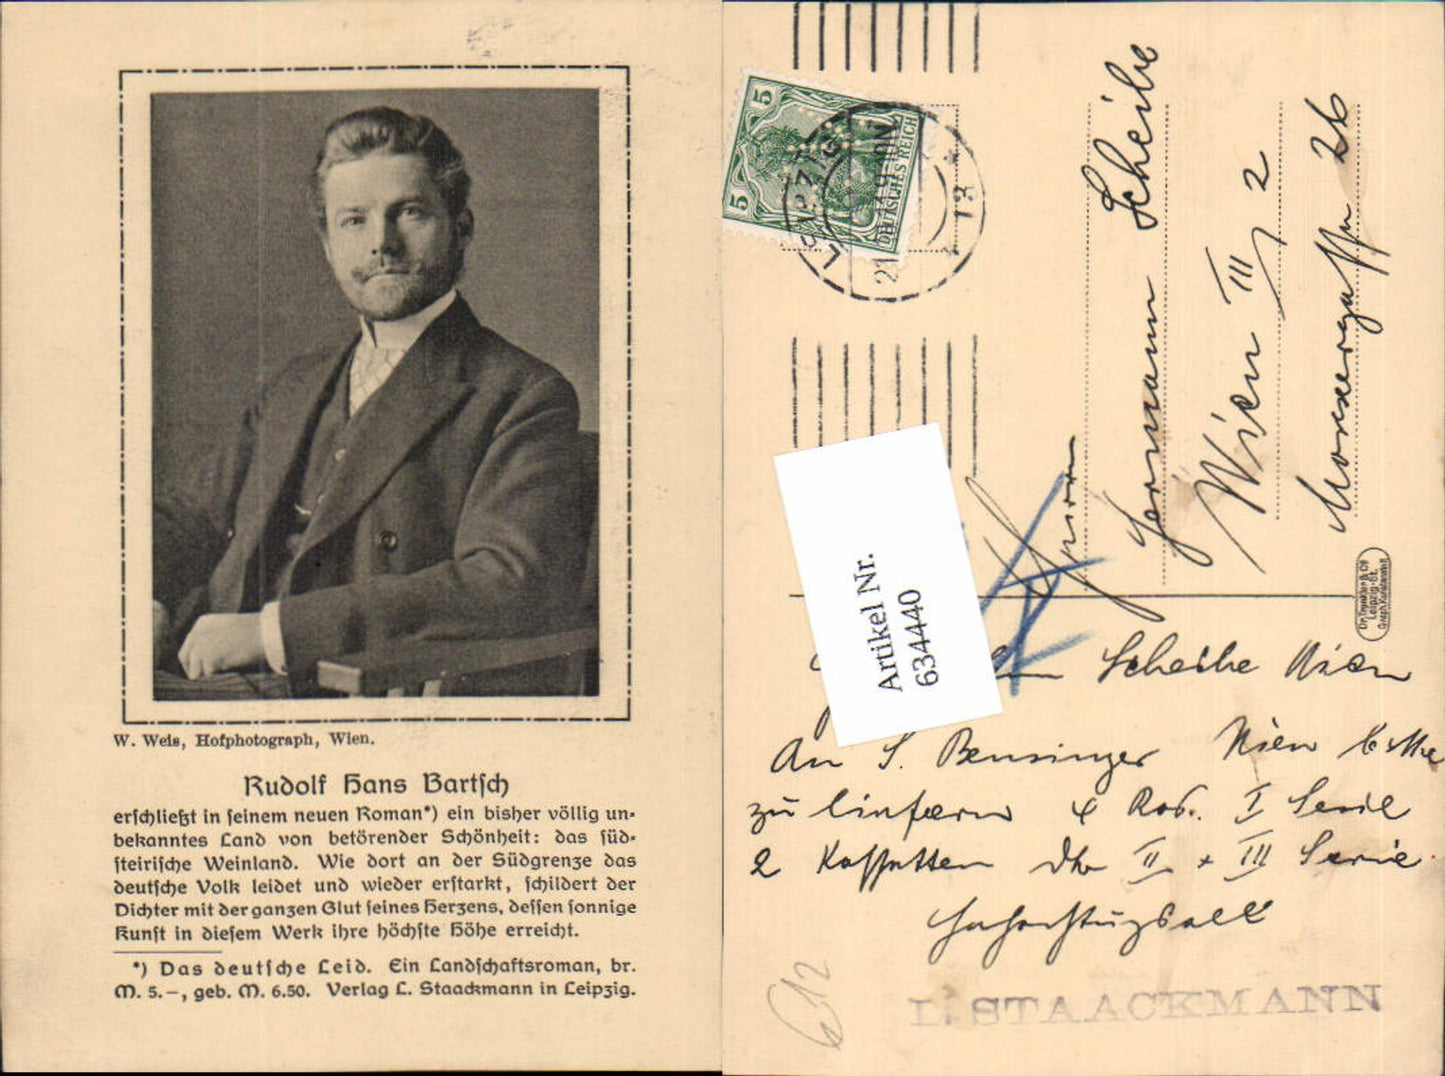 W. Weis, Hofphotograph, Wien.
Rudolf Hans Bartsch
erschließt in seinem neuen Roman*) ein bisher völlig un-
bekanntes Land von betörender Schönheit: das süd-
steirische Weinland. Wie dort an der Südgrenze das
deutsche Volk leidet und wieder erstarkt, schildert der
Dichter mit der ganzen Glut seines Herzens, dessen sonnige
Kunst in diesem Werk ihre höchste Höhe erreicht.
*) Das deutsche Leid. Ein Landschaftsroman, br.
M. 5.–, geb. M. 6.50. Verlag L. Staackmann in Leipzig.
5 5
DEUTSCHES REICH
LEIPZIG
13
Herrn
Hermann Scheibe
Wien III 2
Marxergasse 26
Artikel Nr.
634440
Dr. Trenkler & Co
Leipzig-St.
Scheibe Wien
An S. Bensinger Wien bitte
zu liefern 4 I Serie
2 Kassetten II + III Serie
612
L. STAACKMANN